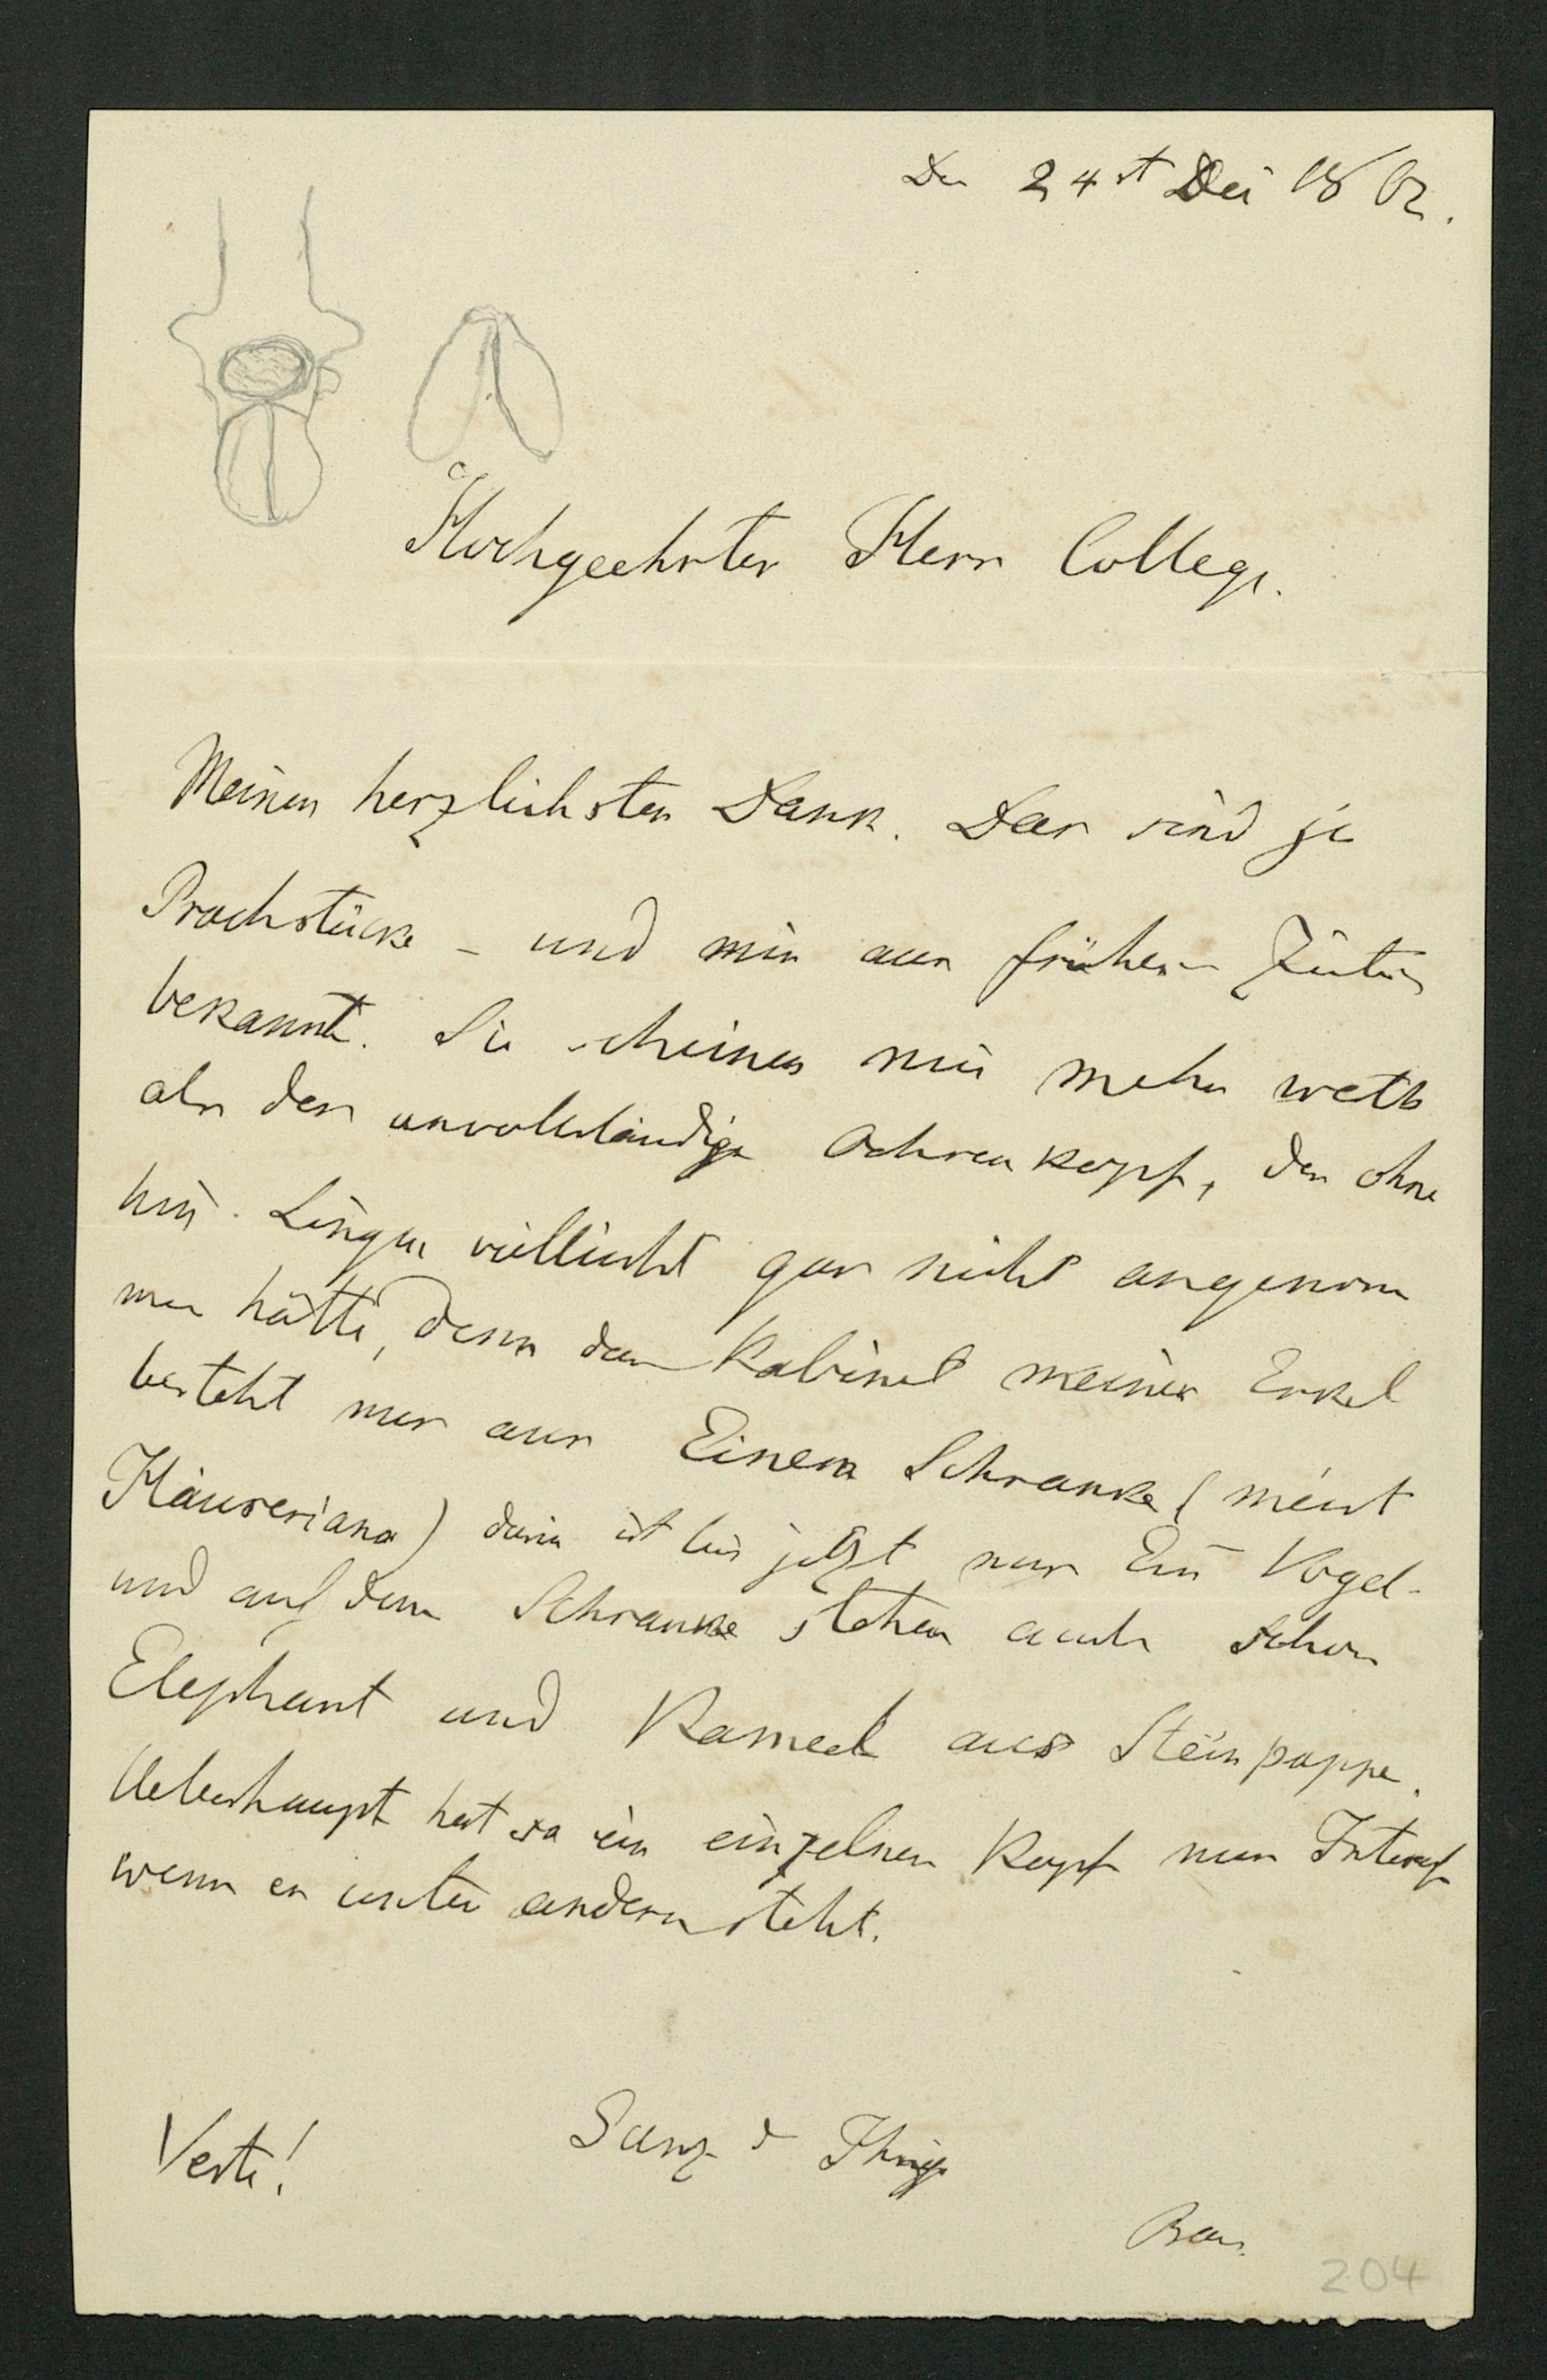 Den 24st Dec 1862.
Hochgeehrter Herr College.
Meinen herzlichsten Dank. Das sind ja
Prachstücke – und mir aus frühern Zeiten
bekannt. Sie scheinen mir mehr werth
als der unvollständige Ochsenkopf, den ohne
hin vielleicht gar nicht angenom
men hätte, denn das Kabinet meiner Enkel
besteht nur aus Einem Schranke (meist
Häuseriana) darin ist bis jetzt nur Ein Vogel-
und auf dem Schranke stehen auch schon
Elephant und Kameel aus Steinpappe.
Ueberhaupt hat so ein einzelner Kopf nur Interesse
wenn er unter andern steht.
Verte!
Ganz d Ihrige
204